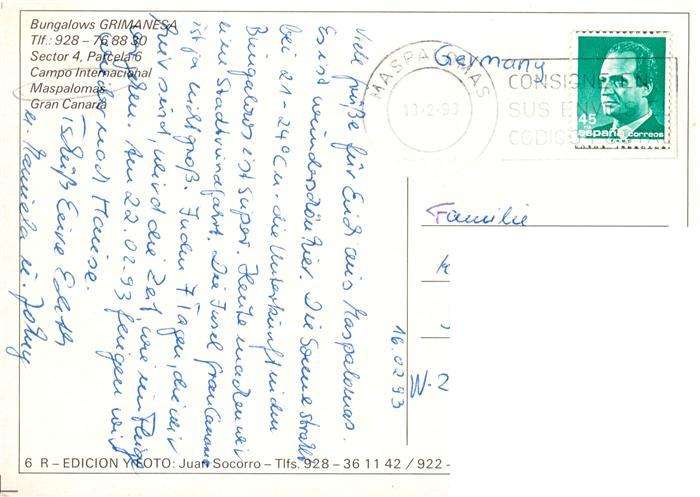 Bungalows GRIMANESA
Tlf.: 928 - 76 88 30
Sector 4, Parcela 6
Campo Internacional
Maspalomas
Gran Canaria
Germany
MASPALOMAS
-2-93
CONSIGNE EN
SUS ENV
CODIGO
45
españa correos
Familie
W-2
16.02.93
Viele Grüße für Euch aus Maspalomas.
Es ist wunderschön hier. Die Sonne strahlt
bei 21-24°C u. die Unterkunft in den
Bungalows ist super. Heute machen wir
eine Stadtrundfahrt. Die Insel Gran Canaria
ist ja nicht groß. In den 7 Tagen, die wir
hier sind, wird die Zeit, wie im Fluge
vergehen. Am 22.02.93 fliegen wir
wieder nach Hause.
Tschüß Eure Edith
u. Daniela u. Johny
6 R – EDICION Y FOTO: Juan Socorro – Tlfs. 928 – 36 11 42 / 922 -